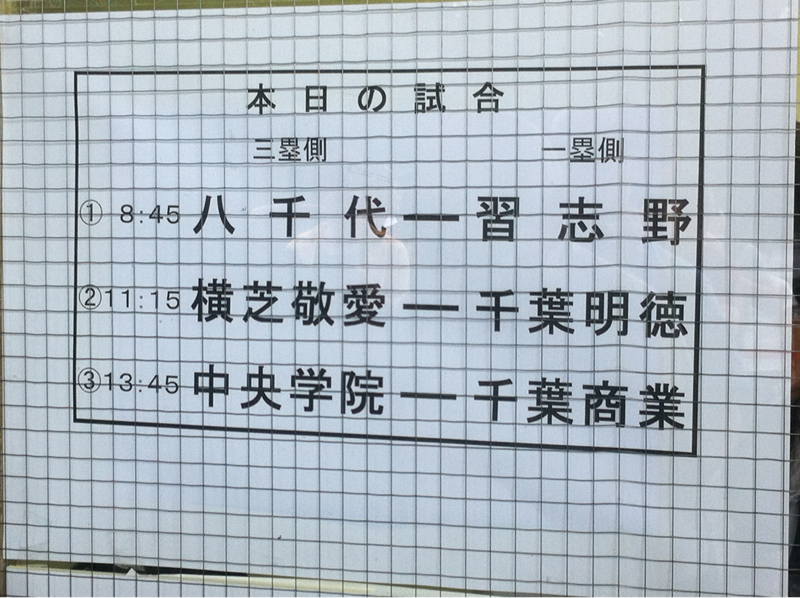 本日の試合
三塁側 一塁側
① 8:45 八千代 ― 習志野
② 11:15 横芝敬愛 ― 千葉明徳
③ 13:45 中央学院 ― 千葉商業